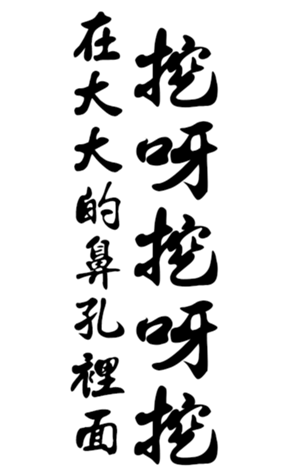 挖呀挖呀挖
在大大的鼻孔裡面